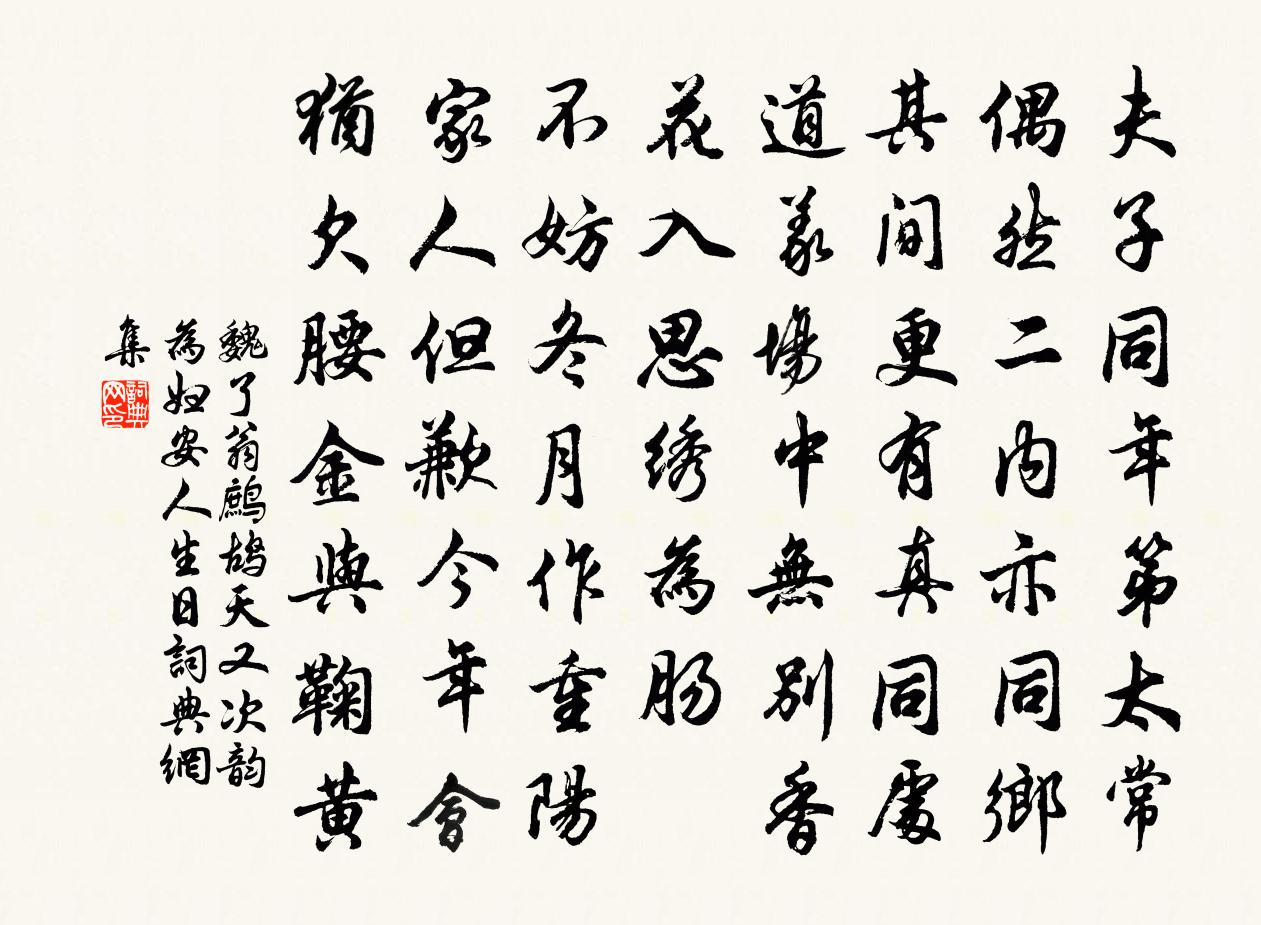 夫子同年第太常
偶然二内亦同鄉
其间更有真同處
道義場中無别香
花入思绣為肠
不妨冬月作重陽
家人但歉今年會
猶欠腰金與鞠黄
魏了翁鷓鴣天又次韵
為妇安人生日詞典網
集
詞典网印